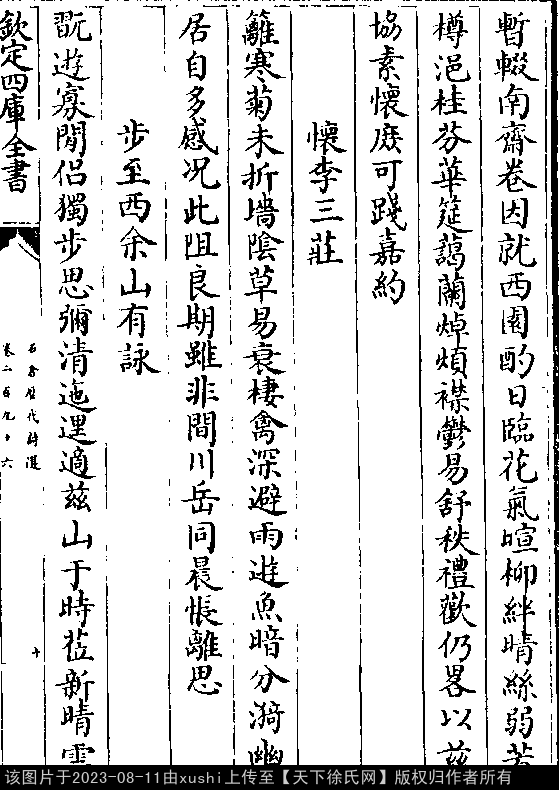 暫輟南齋卷因就西園酌日臨花氣暄柳絆晴絲弱芳
樽浥桂芬華筵藹蘭焯煩襟鬱易舒秩禮歡仍畧以茲
協素懷庶可踐嘉約
懷李三莊
籬寒菊未折墻陰草易衰棲禽深避雨逰魚暗分漪幽
居自多感况此阻良期雖非間川岳同晨悵離思
步至西余山有詠
翫逰寡閒侣獨步思彌清迤逕適兹山于時莅新晴雲
欽定四庫全書
石倉歴代詩選
卷二百九十六
十
该图片于2023-08-11由xushi上传至【天下徐氏网】版权归作者所有